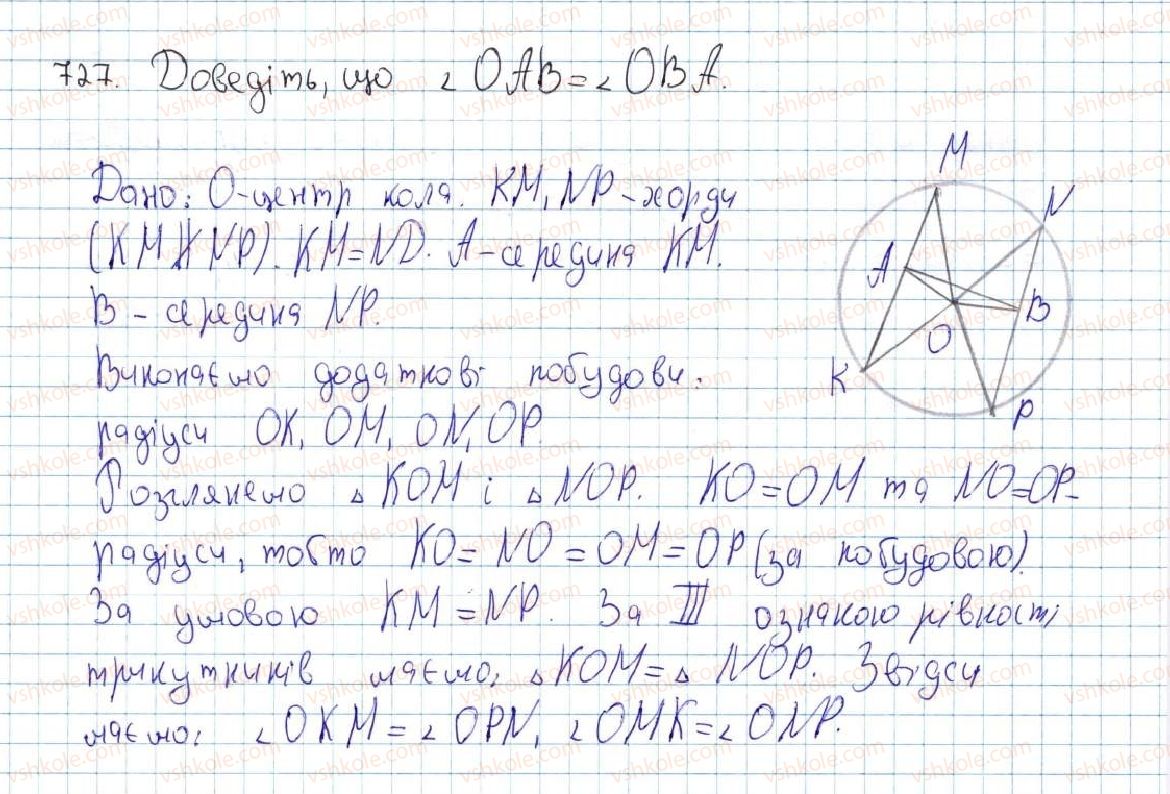 727. Доведіть, що ∠OAB=∠OBA.
Дано: О-центр кола. KM, NP-хорди
(KM∦NP). KM=ND. A-середина KM.
B - середина NP.
Виконаємо додаткові побудови:
радіуси OK, OM, ON, OP
Розглянемо △KOM і △NOP. KO=OM та NO=OP-
радіуси, тобто KO=NO=OM=OP (за побудовою).
За умовою KM=NP. За III ознакою рівності
трикутників маємо: △KOM=△NOP. Звідси
маємо: ∠OKM=∠OPN, ∠OMK=∠ONP.
M
N
A
B
O
K
P